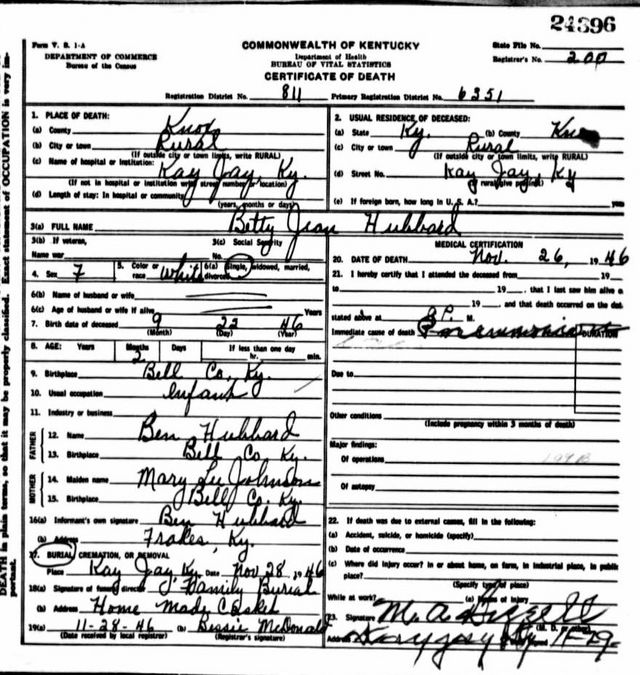 24396
Form V. S. 1-A
DEPARTMENT OF COMMERCE
Bureau of the Census
COMMONWEALTH OF KENTUCKY
Department of Health
BUREAU OF VITAL STATISTICS
CERTIFICATE OF DEATH
State File No.
Registrar's No. 200
Registration District No. 811 Primary Registration District No. 6351
1. PLACE OF DEATH:
(a) County Knox
(b) City or town Rural
(If outside city or town limits, write RURAL)
(c) Name of hospital or institution: Kay Jay, Ky.
(If not in hospital or institution write street number or location)
(d) Length of stay: In hospital or community
(years, months or days)
2. USUAL RESIDENCE OF DECEASED:
(a) State Ky. (b) County Knox
(c) City or town Rural
(If outside city or town limits, write RURAL)
(d) Street No. Kay Jay, Ky
(e) If foreign born, how long in U. S. A.? years
3(a) FULL NAME Betty Jean Hubbard
3(b) If veteran, Name war
3(c) Social Security No.
4. Sex F 5. Color or race White 6(a) Single, widowed, married, divorced
6(b) Name of husband or wife
6(c) Age of husband or wife if alive Years
7. Birth date of deceased 9 22 46
(Month) (Day) (Year)
8. AGE: Years Months Days If less than one day
2 hr. min.
9. Birthplace Bell Co. Ky.
10. Usual occupation Infant
11. Industry or business
FATHER
12. Name Ben Hubbard
13. Birthplace Bell Co. Ky.
MOTHER
14. Maiden name Mary Lee Johnson
15. Birthplace Bell Co. Ky.
16(a) Informant's own signature Ben Hubbard
(b) Address Frakes, Ky.
17. BURIAL, CREMATION, OR REMOVAL
Place Kay Jay Ky. Date Nov 28, 1946
18(a) Signature of funeral director Family Burial
(b) Address Home Made Casket
19(a) 11-28-46 (b) Bessie McDonald
(Date received by local registrar) (Registrar's signature)
MEDICAL CERTIFICATION
20. DATE OF DEATH Nov. 26, 1946
21. I hereby certify that I attended the deceased from 19
to 19 , that I last saw him alive o
19 and that death occurred on the dat
stated above at 8 P. M.
Immediate cause of death Pneumonia DURATION
Due to
Other conditions
(Include pregnancy within 3 months of death)
Major findings:
Of operations
Of autopsy
22. If death was due to external causes, fill in the following:
(a) Accident, suicide, or homicide (specify)
(b) Date of occurrence
(c) Where did injury occur? In or about home, on farm, in industrial place, in public
place?
(Specify type of place)
While at work? (e) Means of injury
23. Signature M. A.
Address Ky 11-29-
DEATH in plain terms, so that it may be properly classified. Exact statement of OCCUPATION is very im-
portant.